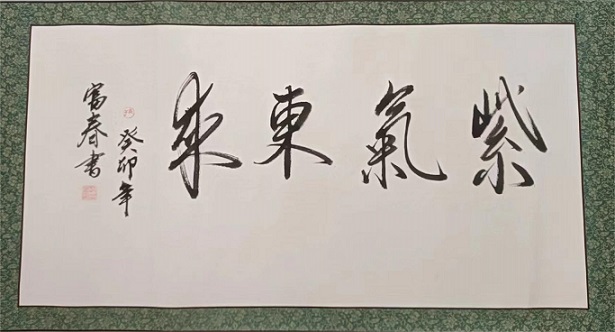 紫氣東來
癸卯年
富春書